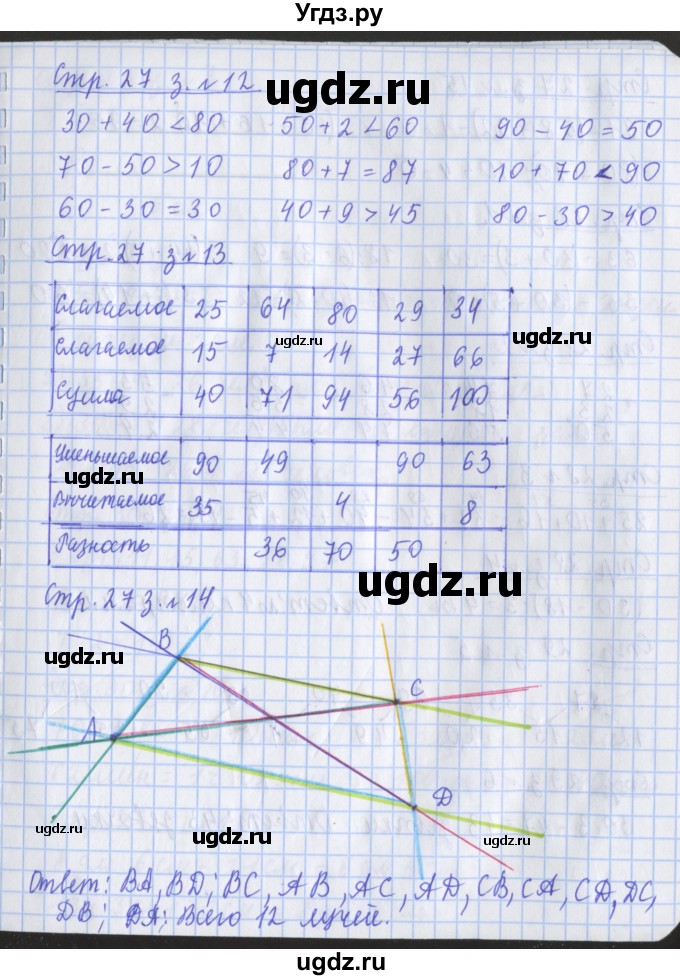 Угдз.ру
Стр. 27 з. №12
ugdz.ru
30 + 40 < 80 50 + 2 < 60 90 - 40 = 50
70 - 50 > 10 80 + 7 = 87 10 + 70 < 90
60 - 30 = 30 40 + 9 > 45 80 - 30 > 40
Стр. 27 з №13
Слагаемое 25 64 80 29 34
ugdz.ru ugdz.ru
Слагаемое 15 7 14 27 66
Сумма 40 71 94 56 100
Уменьшаемое 90 49 90 63
Вычитаемое 35 4 8
Разность 36 70 50
ugdz.ru
Стр. 27 з. №14
B
ugdz.ru
C
A
D
ugdz.ru ugdz.ru ugdz.ru
Ответ: BA, BD; BC, AB, AC, AD, CB, CA, CD, DC,
DB; DA; Всего 12 лучей.
ugdz.ru